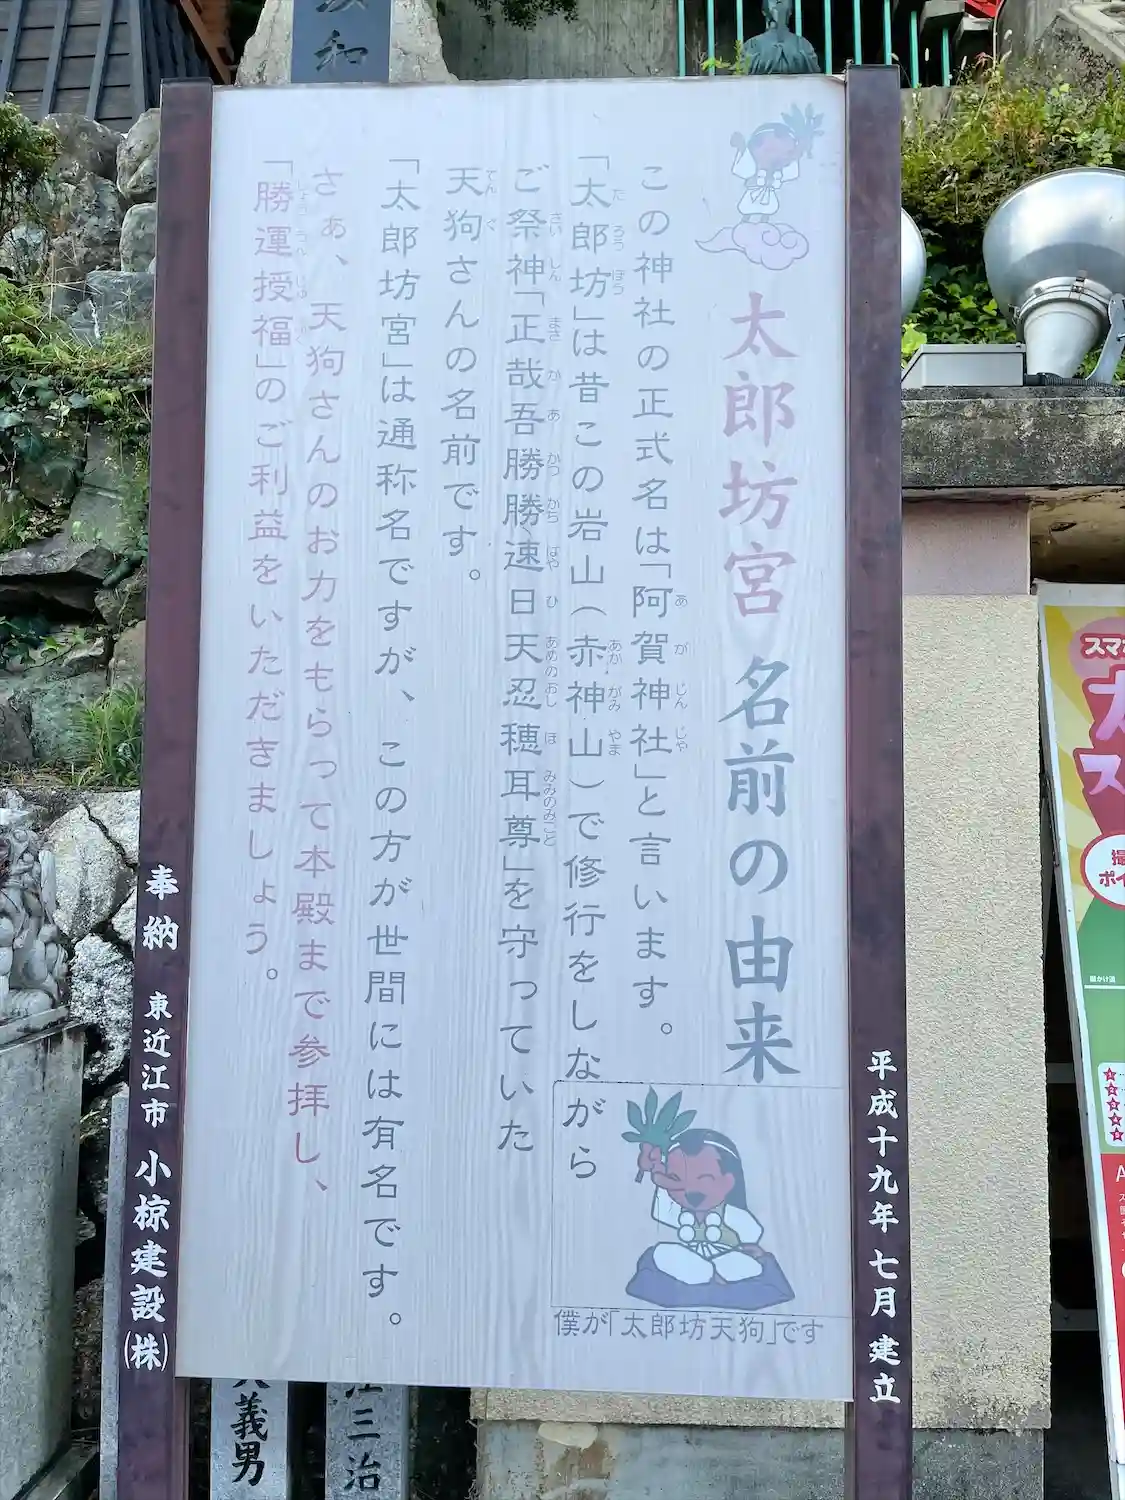 太郎坊宮 名前の由来
この神社の正式名は「阿賀神社」と言います。
「太郎坊」は昔この岩山(赤神山)で修行をしながら
ご祭神「正哉吾勝勝速日天忍穂耳尊」を守っていた
天狗さんの名前です。
「太郎坊宮」は通称名ですが、この方が世間には有名です。
さぁ、天狗さんのお力をもらって本殿まで参拝し、
「勝運授福」のご利益をいただきましょう。
僕が「太郎坊天狗」です
平成十九年 七月 建立
奉納 東近江市 小椋建設(株)
和
義男
江三治
スマ
ス
撮
ポイ